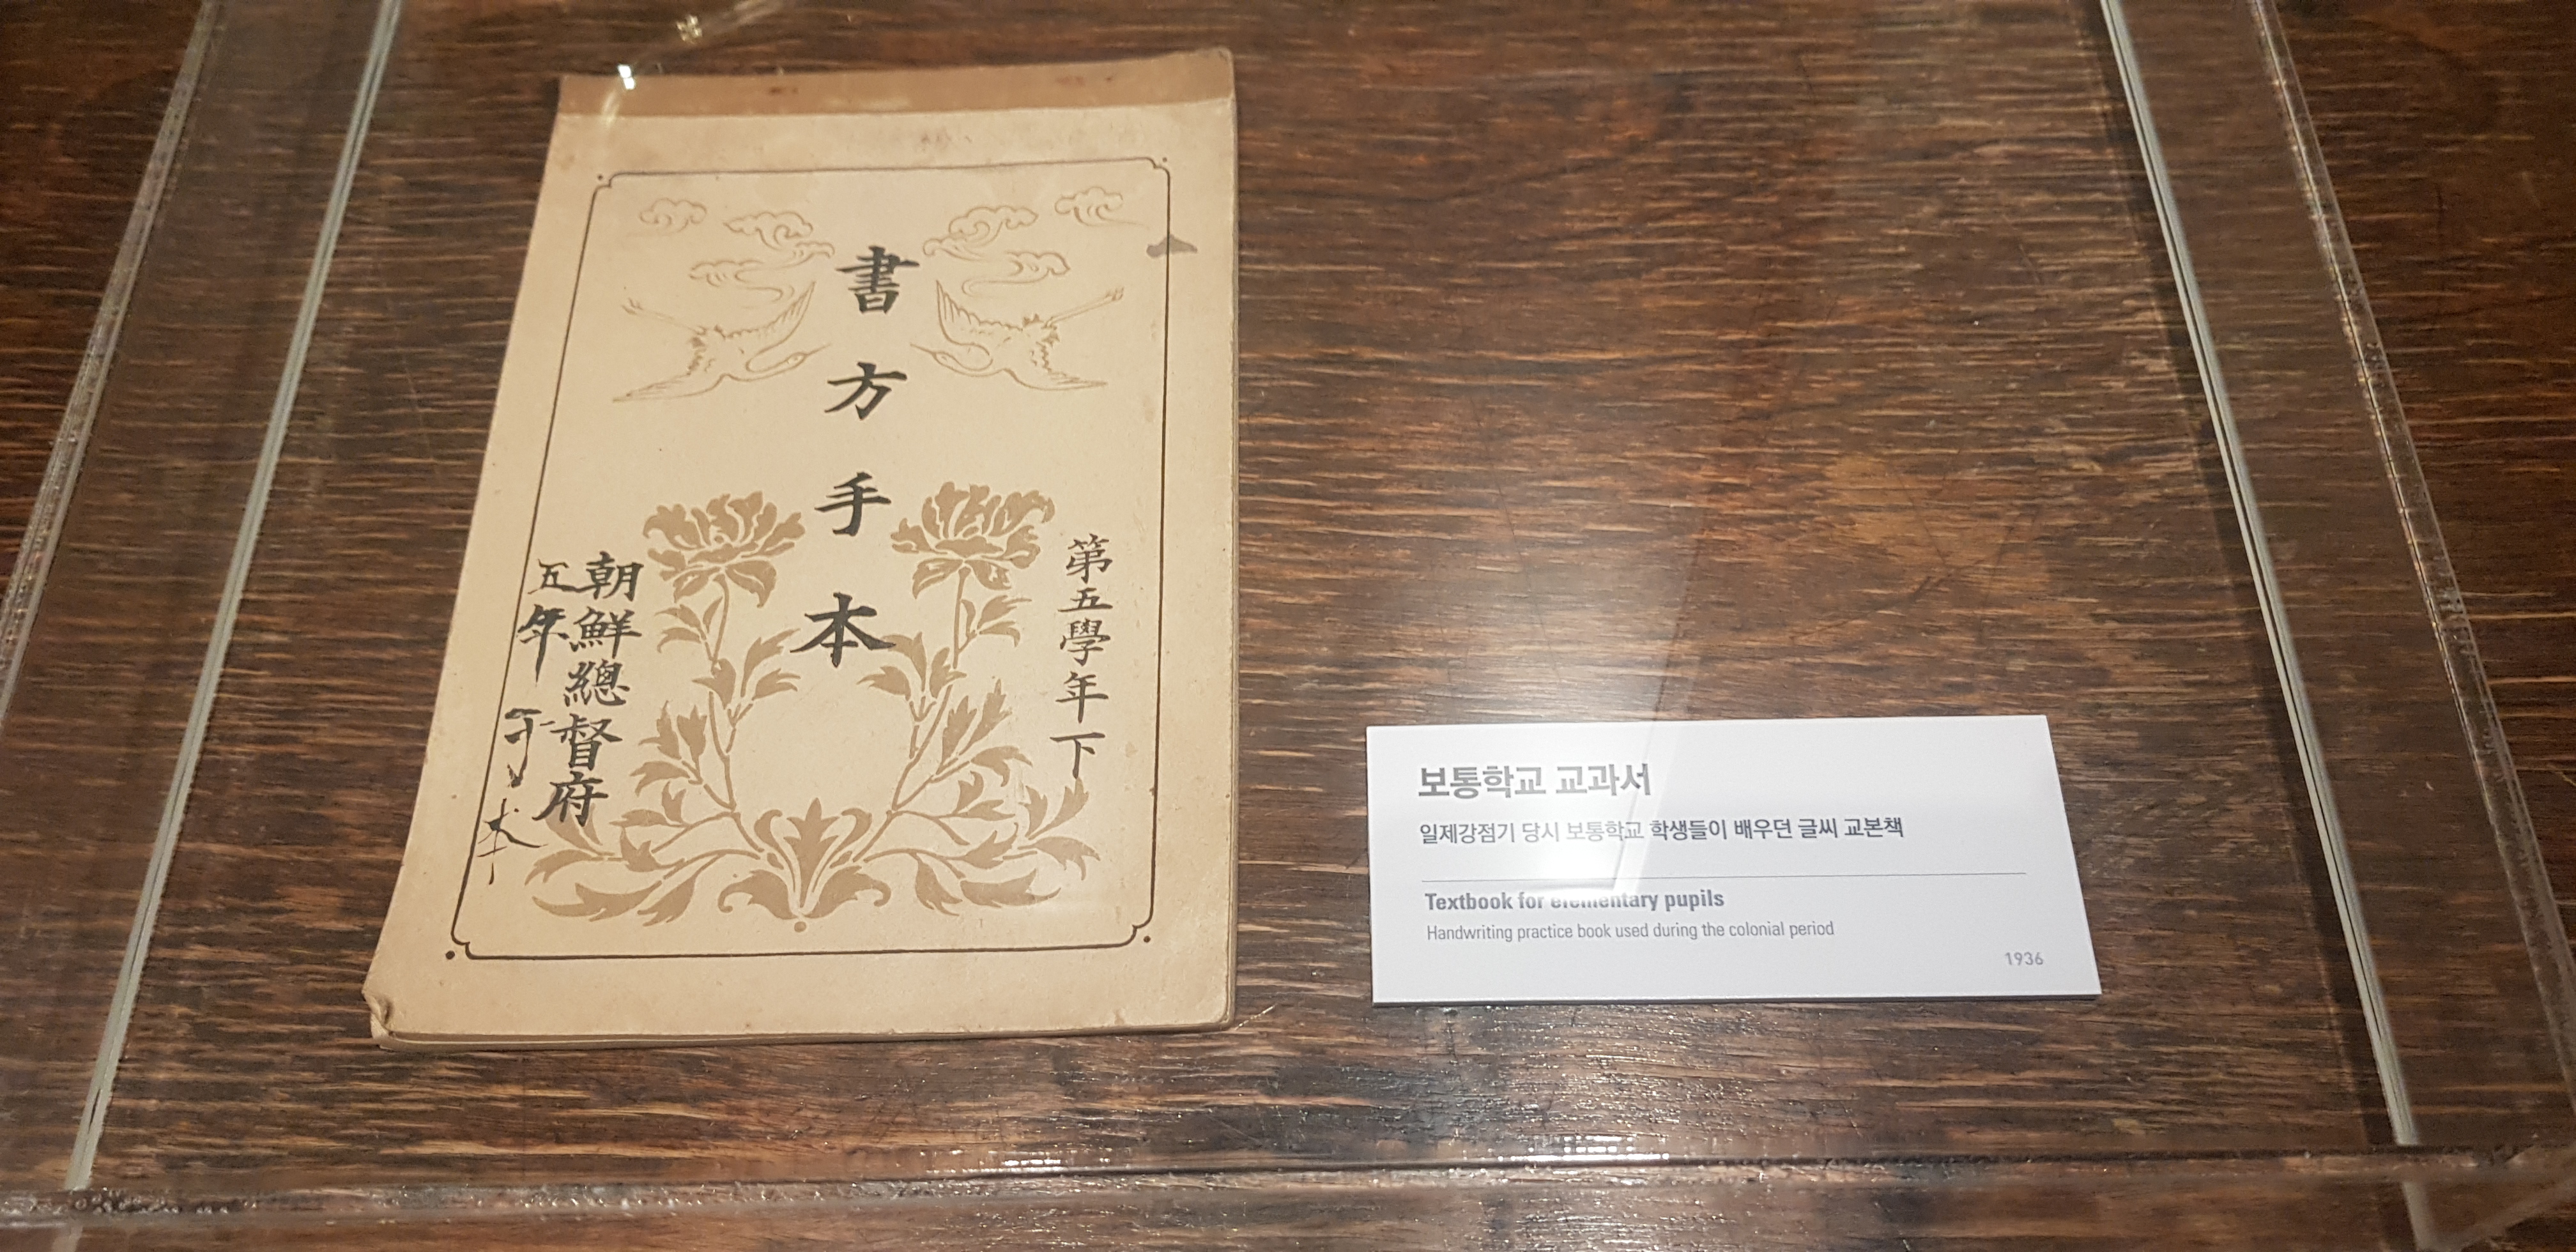 第五學年下
書方手本
朝鮮總督府
五年
本
보통학교 교과서
일제강점기 당시 보통학교 학생들이 배우던 글씨 교본책
Textbook for elementary pupils
Handwriting practice book used during the colonial period
1936